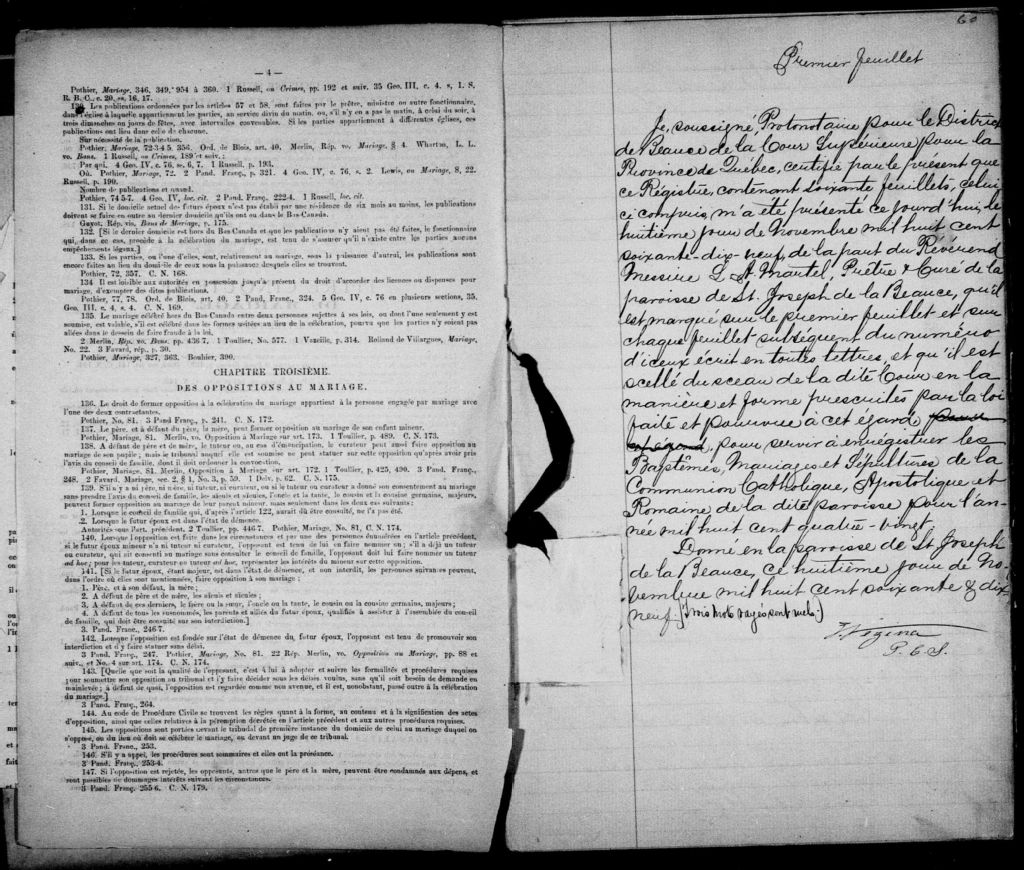 — 4 —
Pothier, Mariage, 346, 349, 954 à 360. 1 Russell, on Crimes, pp. 192 et suiv. 35 Geo. III, c. 4, s, 1. S.
R. B. C., c. 20, ss. 16, 17.
130. Les publications ordonnées par les articles 57 et 58, sont faites par le prêtre, ministre ou autre fonctionnaire,
dans l'église à laquelle appartiennent les parties, au service divin du matin, ou, s'il n'y en a pas le matin, à celui du soir, à
trois dimanches ou jours de fêtes, avec intervalles convenables. Si les parties appartiennent à différentes églises, ces
publications ont lieu dans celle de chacune.
Sur nécessité de la publication.
Pothier, Mariage, 72-3-4 5, 356. Ord. de Blois, art. 40. Merlin, Rép. vo. Mariage, § 4. Wharton, L. L.
vo. Bans. 1 Russell, on Crimes, 189 et suiv.:
Par qui. 4 Geo. IV, c. 76, ss. 6, 7. 1 Russell, p. 193.
Où. Pothier, Mariage, 72. 2 Pand. Franç., p. 321. 4 Geo. IV, c. 76, s. 2. Lewis, on Mariage, 8, 22.
Russell, p. 190.
Nombre de publications et quand.
Pothier, 74 5-7. 4 Geo. IV, loc. cit. 2 Pand. Franç. 222-4. 1 Russell, loc. cit.
131. Si le domicile actuel des futurs époux n'est pas établi par une résidence de six mois au moins, les publications
doivent se faire en outre au dernier domicile qu'ils ont eu dans le Bas-Canada.
Guyot, Rép. vis. Bans de Mariage, p. 175.
132. [Si le dernier domicile est hors du Bas Canada et que les publications n'y aient pas été faites, le fonctionnaire
qui, dans ce cas, procède à la célébration du mariage, est tenu de s'assurer qu'il n'existe entre les parties aucuns
empêchements légaux.]
133. Si les parties, ou l'une d'elles, sont, relativement au mariage, sous la puissance d'autrui, les publications sont
encore faites au lieu du domicile de ceux sous la puissance desquels elles se trouvent.
Pothier, 72, 357. C. N. 168.
134 Il est loisible aux autorités en possession jusqu'à présent du droit d'accorder des licences ou dispenses pour
mariage, d'exempter des dites publications.
Pothier, 77, 78. Ord. de Blois, art. 40, 2 Pand. Franç., 324. 5 Geo. IV, c. 76 en plusieurs sections, 35.
Geo. III, c. 4, s. 4. C. N. 169.
135. Le mariage célébré hors du Bas-Canada entre deux personnes sujettes à ses lois, ou dont l'une seulement y est
soumise, est valable, s'il est célébré dans les formes usitées au lieu de la célébration, pourvu que les parties n'y soient pas
allées dans le dessein de faire fraude à la loi.
2 Merlin, Rép. vo. Bans. pp. 436 7, 1 Toullier, No. 577. 1 Vazeille, p. 314. Rolland de Villargues, Mariage,
No. 22. 3 Favard, rép., p. 30.
Pothier, Mariage, 327, 363. Bouhier, 390.
CHAPITRE TROISIÈME.
DES OPPOSITIONS AU MARIAGE.
136. Le droit de former opposition à la célébration du mariage appartient à la personne engagée par mariage avec
l'une des deux contractantes.
Pothier, No. 81. 3 Pand Franç., p. 241. C. N. 172.
137. Le père, et à défaut du père, la mère, peut former opposition au mariage de son enfant mineur.
Pothier, Mariage, 81. Merlin, vo. Opposition à Mariage sur art. 173. 1 Toullier, p. 489. C. N. 173.
138. A défaut de père et de mère, le tuteur, ou, en cas d'émancipation, le curateur peut aussi faire opposition au
mariage de son pupile; mais le tribunal auquel elle est soumise ne peut statuer sur cette opposition qu'après avoir pris
l'avis du conseil de famille, dont il doit ordonner la convocation.
Pothier, Mariage, 81. Merlin, Opposition à Mariage sur art. 172. 1 Toullier, p. 425, 490. 3 Pand. Franç.,
248. 2 Favard, Mariage, sec. 2, § 1, No. 3, p. 59. 1 Delv. p. 62. C. N. 175.
139. S'il n'y a ni père, ni mère, ni tuteur, ni curateur, ou si le tuteur ou curateur a donné son consentement au mariage
sans prendre l'avis du conseil de famille, les aïeuls et aïeules, l'oncle et la tante, le cousin et la cousine germains, majeurs,
peuvent former opposition au mariage de leur parent mineur, mais seulement dans les deux cas suivants:
1. Lorsque le conseil de famille qui, d'après l'article 122, aurait dû être consulté, ne l'a pas été.
2. Lorsque le futur époux est dans l'état de démence.
Autorités sous l'art. précédent. 2 Toullier, pp. 446-7. Pothier, Mariage, No. 81, C. N. 174.
140. Lorsque l'opposition est faite dans les circonstances et par une des personnes énumérées en l'article précédent,
si le futur époux mineur n'a ni tuteur ni curateur, l'opposant est tenu de lui en faire nommer un; s'il a déjà un tuteur
ou curateur, qui ait consenti au mariage sans consulter le conseil de famille, l'opposant doit lui faire nommer un tuteur
ad hoc; pour les tuteur, curateur ou tuteur ad hoc, représenter les intérêts du mineur sur cette opposition.
141. [Si le futur époux, étant majeur, est dans l'état de démence, et non interdit, les personnes suivantes peuvent,
dans l'ordre où elles sont mentionnées, faire opposition à son mariage:
1. Père, et à son défaut, la mère;
2. A défaut de père et de mère, les aïeuls et aïeules;
3. A défaut de ces derniers, le frère ou la sœur, l'oncle ou la tante, le cousin ou la cousine germains, majeurs;
4. A défaut de tous les susnommés, les parents et alliés du futur époux, qualifiés à assister à l'assemblée du conseil
de famille, qui doit être consulté sur son interdiction.]
3. Pand. Franç., 246-7.
142. Lorsque l'opposition est fondée sur l'état de démence du futur époux, l'opposant est tenu de promouvoir son
interdiction et d'y faire statuer sans délai.
3 Pand. Franç., 247. Pothier, Mariage, No. 81. 22 Rép. Merlin, vo. Opposition au Mariage, pp. 88 et
suiv., et No. 4 sur art. 174. C. N. 174.
143. [Quelle que soit la qualité de l'opposant, c'est à lui à adopter et suivre les formalités et procédures requises
pour soumettre son opposition au tribunal et l'y faire décider sous les délais voulus, sans qu'il soit besoin de demande en
mainlevée; à défaut de quoi, l'opposition est regardée comme non avenue, et il est, nonobstant, passé outre à la célébration
du mariage.]
3 Pand. Franç., 264.
144. Au code de Procédure Civile se trouvent les règles quant à la forme, au contenu et à la signification des actes
d'opposition, ainsi que celles relatives à la péremption décrétée en l'article précédent et aux autres procédures requises.
145. Les oppositions sont portées devant le tribunal de première instance du domicile de celui au mariage duquel on
s'oppose, ou du lieu où doit se célébrer le mariage, ou devant un juge de ce tribunal.
3 Pand. Franc., 253.
146. S'il y a appel, les procédures sont sommaires et elles ont la préséance.
3 Pand. Franç., 253-4.
147. Si l'opposition est rejetée, les opposants, autres que le père et la mère, peuvent être condamnés aux dépens, et
sont passibles de dommages-intérêts suivant les circonstances.
3 Pand. Franç. 255-6. C. N. 179.
60
Premier feuillet
Je, soussigné Protonotaire pour le District
de Beauce de la Cour Supérieure pour la
Province de Québec, certifie par le présent que
ce Régistre, contenant soixante feuillets, celui
ci compris, m'a été présenté ce jourd'hui, le
huitième jour de Novembre mil huit cent
soixante-dix-neuf, de la part du Révérend
Messire L. A. Martel Prêtre & Curé de la
paroisse de St. Joseph de la Beauce, qu'il
est marqué sur le premier feuillet et sur
chaque feuillet subséquent du numéro
d'iceux écrit en toutes lettres, et qu'il est
scellé du sceau de la dite Cour en la
manière et forme prescrites par la loi
faite et pourvue à cet égard pour
cet égard pour servir à enregistrer les
Baptêmes, Mariages et Sépultures de la
Communion Catholique, Apostolique et
Romaine de la dite paroisse pour l'an-
née mil huit cent quatre-vingt.
Donné en la paroisse de St Joseph
de la Beauce, ce huitième jour de No-
vembre mil huit cent soixante & dix
neuf. [trois mots rayés sont nuls.]
Vézina
P. C. S.